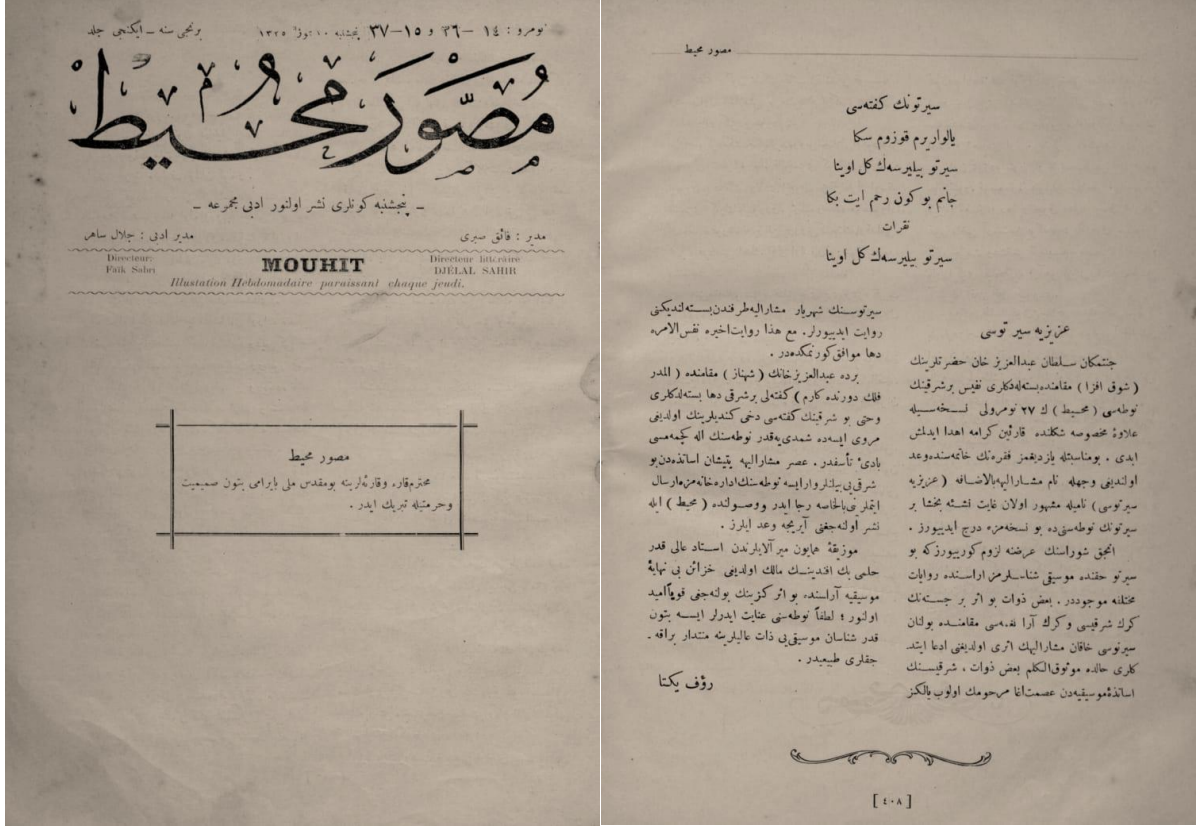 نومرو : ١٤ — ٣٦ و ١٥ — ٣٧ پنجشنبه ١٠ تموز ١٣٢٥ برنجی سنه — ایكنجی جلد
مصور محیط
ـ پنجشنبه كونلری نشر اولنور ادبی مجموعه ـ
مدیر : فائق صبری
مدیر ادبی : جلال ساهر
Directeur:
Faïk Sabri
MOUHIT
Directeur littéraire
DJÉLAL SAHIR
Illustation Hebdomadaire paraissant chaque jeudi.
مصور محیط
محترم قاری وقارئه‌لرینه بومقدس ملی بایرامی بتون صمیمیت
وحرمتیله تبریك ایدر .
مصور محیط
سیرتونك كفته‌سی
یالواریرم قوزوم سكا
سیرتو بیلیرسه‌ك كل اوینا
جانم بو كون رحم ایت بكا
نقرات
سیرتو بیلیرسه‌ك كل اوینا
عزیزیه سیرتوسی
جنتمكان سلطان عبدالعزیز خان حضرتلرینك
( شوق افزا ) مقامنده بسته‌لدكلری نفیس برشرقینك
نوطه‌سی ( محیط ) ك ٢٧ نومرولی نسخه‌سیله
علاوهٔ مخصوصه شكلنده قارئین كرامه اهدا ایدلمش
ایدی . بومناسبتله یازدیغمز فقره‌نك خاتمه‌سنده وعد
اولندیغی وجهله نام مشارالیهه بالاضافه ( عزیزیه
سیرتوسی ) نامیله مشهور اولان غایت نشئه بخشا بر
سیرتونك نوطه‌سنی‌ده بو نسخه‌مزه درج ایدییورز .
انجق شوراسنك عرضنه لزوم كورییورزكه بو
سیرتو حقنده موسیقی شناسلرمز اراسنده روایات
مختلفه موجوددر . بعض ذوات بو اثر بر جسته‌نك
كرك شرقیسی وكرك آرا نغمه‌سی مقامنده بولنان
سیرتوسی خاقان مشارالیهك اثری اولدیغنی ادعا ایتد
كلری حالده موثوق‌الكلم بعض ذوات ، شرقیسنك
اساتذهٔ موسیقیه‌دن عصمت‌اغا مرحومك اولوب یالكز
سیرتوسنك شهریار مشارالیه طرفندن بسته‌لندیكنی
روایت ایدییورلر. مع هذا روایت اخیره نفس‌الامره
دها موافق كورنمكده‌در .
برده عبدالعزیز خانك ( شهناز ) مقامنده ( المدر
فلك دورنده كارم ) كفته‌لی برشرقی دها بسته‌لدكلری
وحتی بو شرقینك كفته‌سی دخی كندیلرینك اولدیغی
مروی ایسه‌ده شمدی‌یه‌قدر نوطه‌سنك اله كچمه‌مسی
بادیٔ تأسفدر. عصر مشارالیهه یتیشان اساتذه‌دن بو
شرقی‌یی بیلنلر وارایسه نوطه‌سنك اداره‌خانه‌مزه ارسال
ایتملرینی بالخاصه رجا ایدر ووصولنده ( محیط ) ایله
نشر اولنه‌جغنی آیریجه وعد ایلرز .
موزیقهٔ همایون میرآلایلرندن استاد عالی قدر
حلمی بك افندینك مالك اولدیغی خزائن بی نهایهٔ
موسیقیه آراسنده بو اثر كزینك بولنه‌جغی قویاً امید
اولنور ؛ لطفاً نوطه‌سنی عنایت ایدرلر ایسه بتون
قدر شناسان موسیقی‌یی ذات عالیلرینه منتدار براقه ـ
جقلری طبیعیدر .
رؤف یكتا
[ ٤٠٨ ]